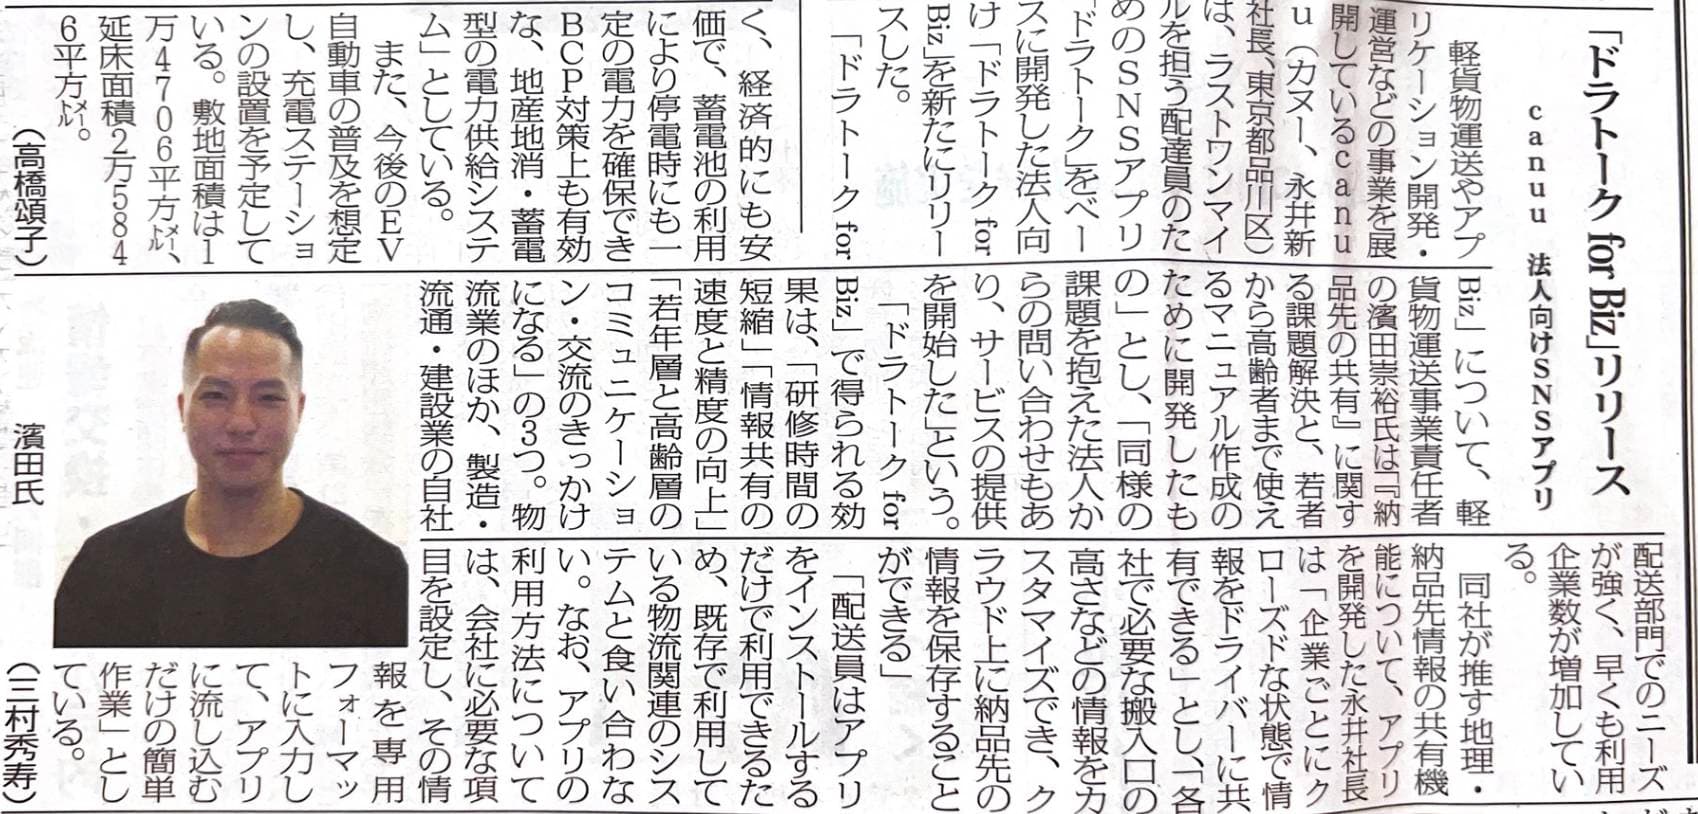 「ドラトーク for Biz」リリース
canuu 法人向けSNSアプリ
軽貨物運送やアプ
リケーション開発・
運営などの事業を展
開しているcanu
u(カヌー、永井新
社長、東京都品川区)
は、ラストワンマイ
ルを担う配達員のた
めのSNSアプリ
「ドラトーク」をベー
スに開発した法人向
け「ドラトーク for
Biz」を新たにリリー
スした。
「ドラトーク for
Biz」について、軽
貨物運送事業責任者
の濱田崇裕氏は『納
品先の共有』に関す
る課題解決と、若者
から高齢者まで使え
るマニュアル作成の
ために開発したも
の」とし、「同様の
課題を抱えた法人か
らの問い合わせもあ
り、サービスの提供
を開始した」という。
「ドラトーク for
Biz」で得られる効
果は、「研修時間の
短縮」「情報共有の
速度と精度の向上」
「若年層と高齢層の
コミュニケーショ
ン・交流のきっかけ
になる」の3つ。物
流業のほか、製造・
流通・建設業の自社
濱田氏
配送部門でのニーズ
が強く、早くも利用
企業数が増加してい
る。
同社が推す地理・
納品先情報の共有機
能について、アプリ
を開発した永井社長
は「企業ごとにク
ローズドな状態で情
報をドライバーに共
有できる」とし、「各
社で必要な搬入口の
高さなどの情報をカ
スタマイズでき、ク
ラウド上に納品先の
情報を保存すること
ができる」
「配送員はアプリ
をインストールする
だけで利用できるた
め、既存で利用して
いる物流関連のシス
テムと食い合わな
い。なお、アプリの
利用方法について
は、会社に必要な項
目を設定し、その情
報を専用
フォーマッ
トに入力し
て、アプリ
に流し込む
だけの簡単
作業」とし
ている。
(三村秀寿)
く、経済的にも安
価で、蓄電池の利用
により停電時にも一
定の電力を確保でき
BCP対策上も有効
な、地産地消・蓄電
型の電力供給システ
ム」としている。
また、今後のEV
自動車の普及を想定
し、充電ステーショ
ンの設置を予定して
いる。敷地面積は1
万4706平方㍍、
延床面積2万584
6平方㍍。
(高橋頌子)